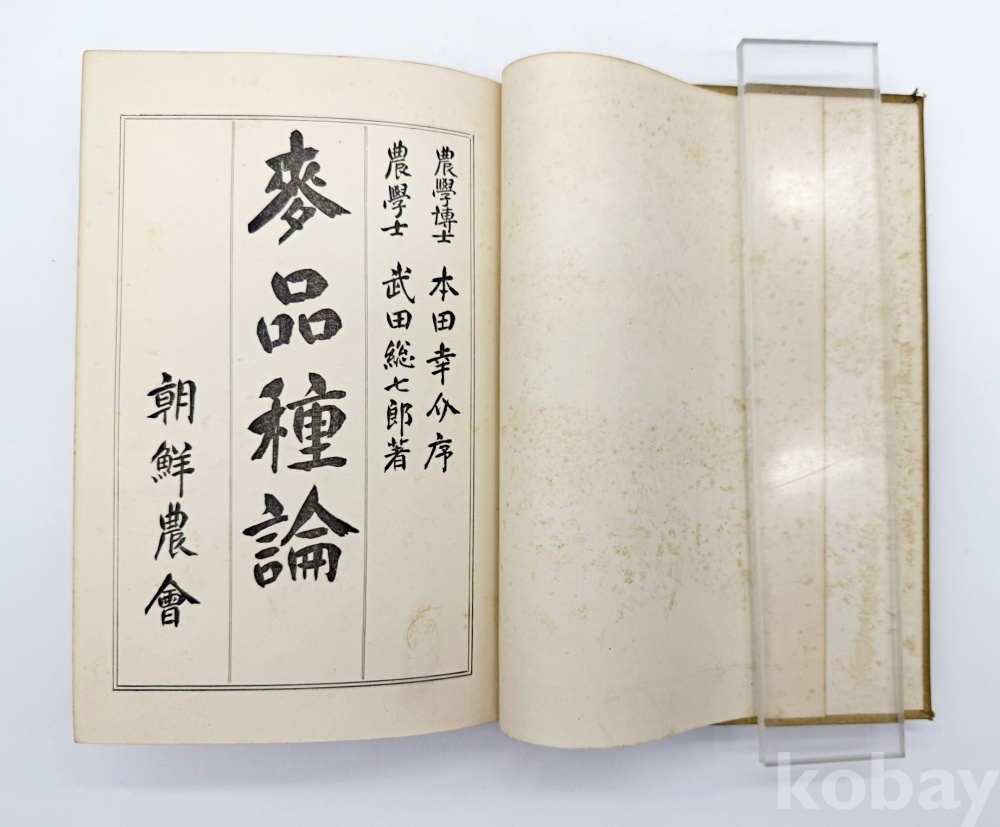 農學博士 本田幸介序
農學士 武田総七郎著
麥品種論
朝鮮農會
kobay